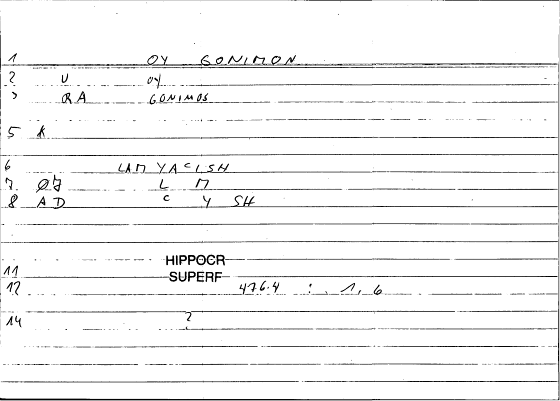 1 OY GONIMON
2 U OY
3 QRA GONIMOS
5 K
6 LAM YACISH
7 07 L M
8 AD C Y SH
11 HIPPOCR
SUPERF
12 476.4 : 1, 6
14 ?